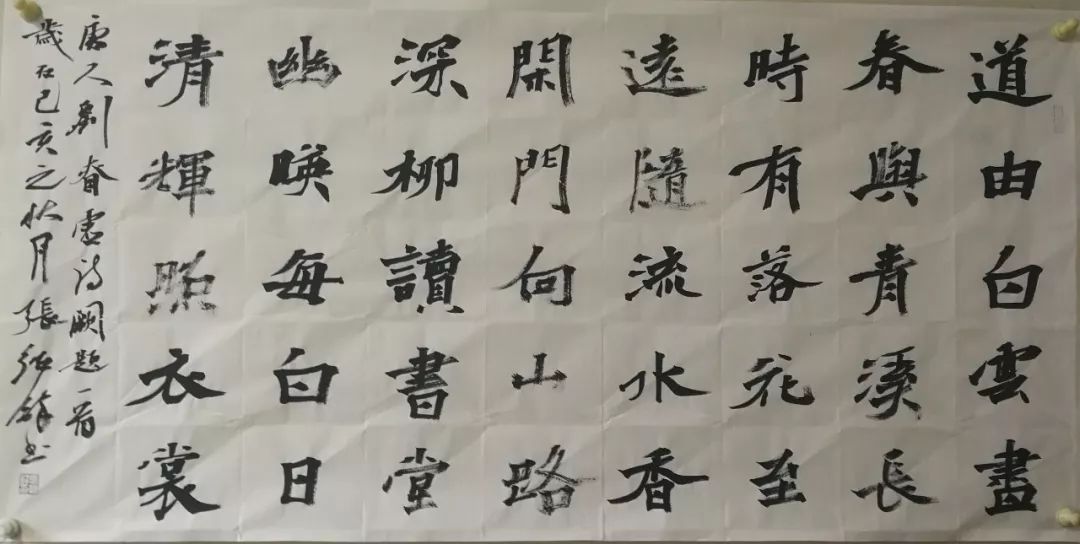 道由白雲盡
春與青溪長
時有落花至
遠隨流水香
閑門向山路
深柳讀書堂
幽暎每白日
清輝照衣裳
唐人劉昚虛詩闕題一首
歲在己亥之秋月張書